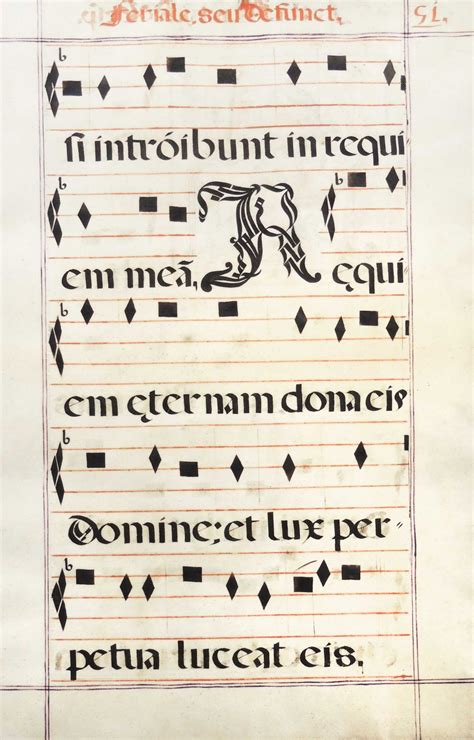 Feriale, seu Defunct. 51.
si intróibunt in requi
em meã, R ęqui
em ęternam dona eis
Domine; et lux per-
petua luceat eis.